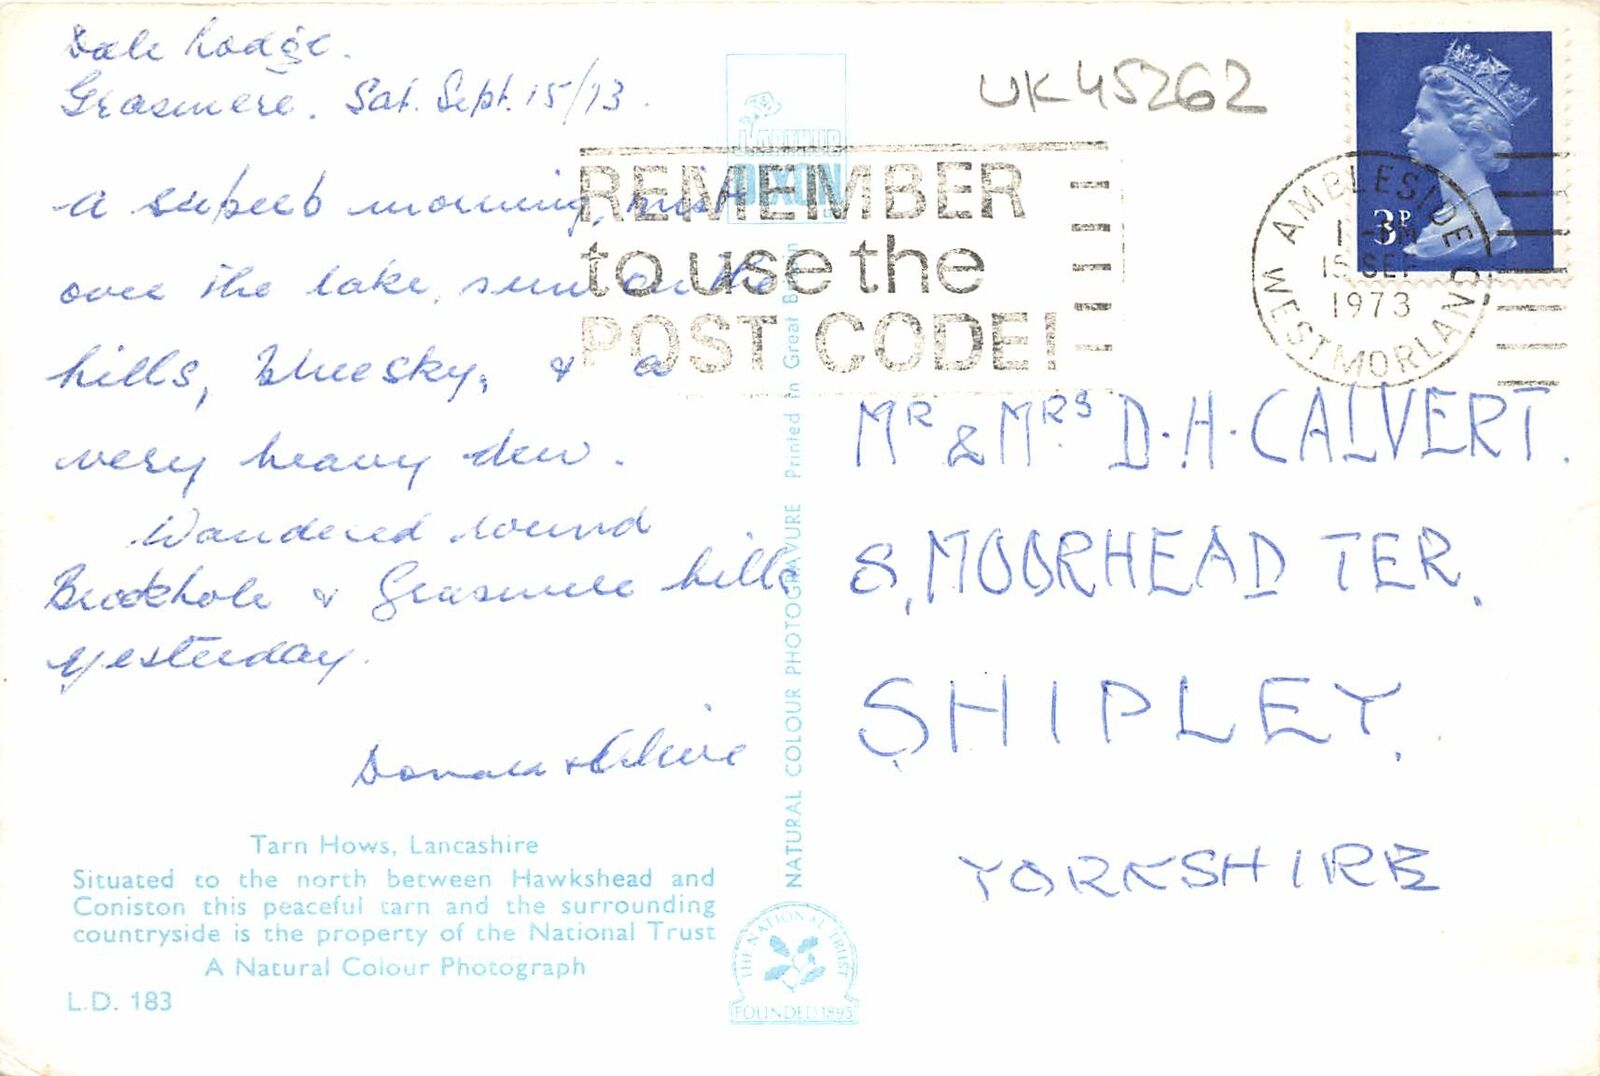 Dale Lodge.
Grasmere. Sat. Sept. 15/73.
A superb morning, mist
over the lake, sun on the
hills, blue sky, & a
very heavy dew.
Wandered round
Brockhole & Grasmere hills
yesterday.
Donald & Olive
Tarn Hows, Lancashire
Situated to the north between Hawkshead and
Coniston this peaceful tarn and the surrounding
countryside is the property of the National Trust
A Natural Colour Photograph
L.D. 183
J. ARTHUR
DIXON
NATURAL COLOUR PHOTOGRAVURE Printed in Great Britain
THE NATIONAL TRUST
FOUNDED 1895
UK45262
REMEMBER
to use the
POST CODE!
AMBLESIDE
15 SEP
1973
WESTMORLAND
3P
MR & MRS D.H. CALVERT.
8, MOORHEAD TER.
SHIPLEY.
YORKSHIRE